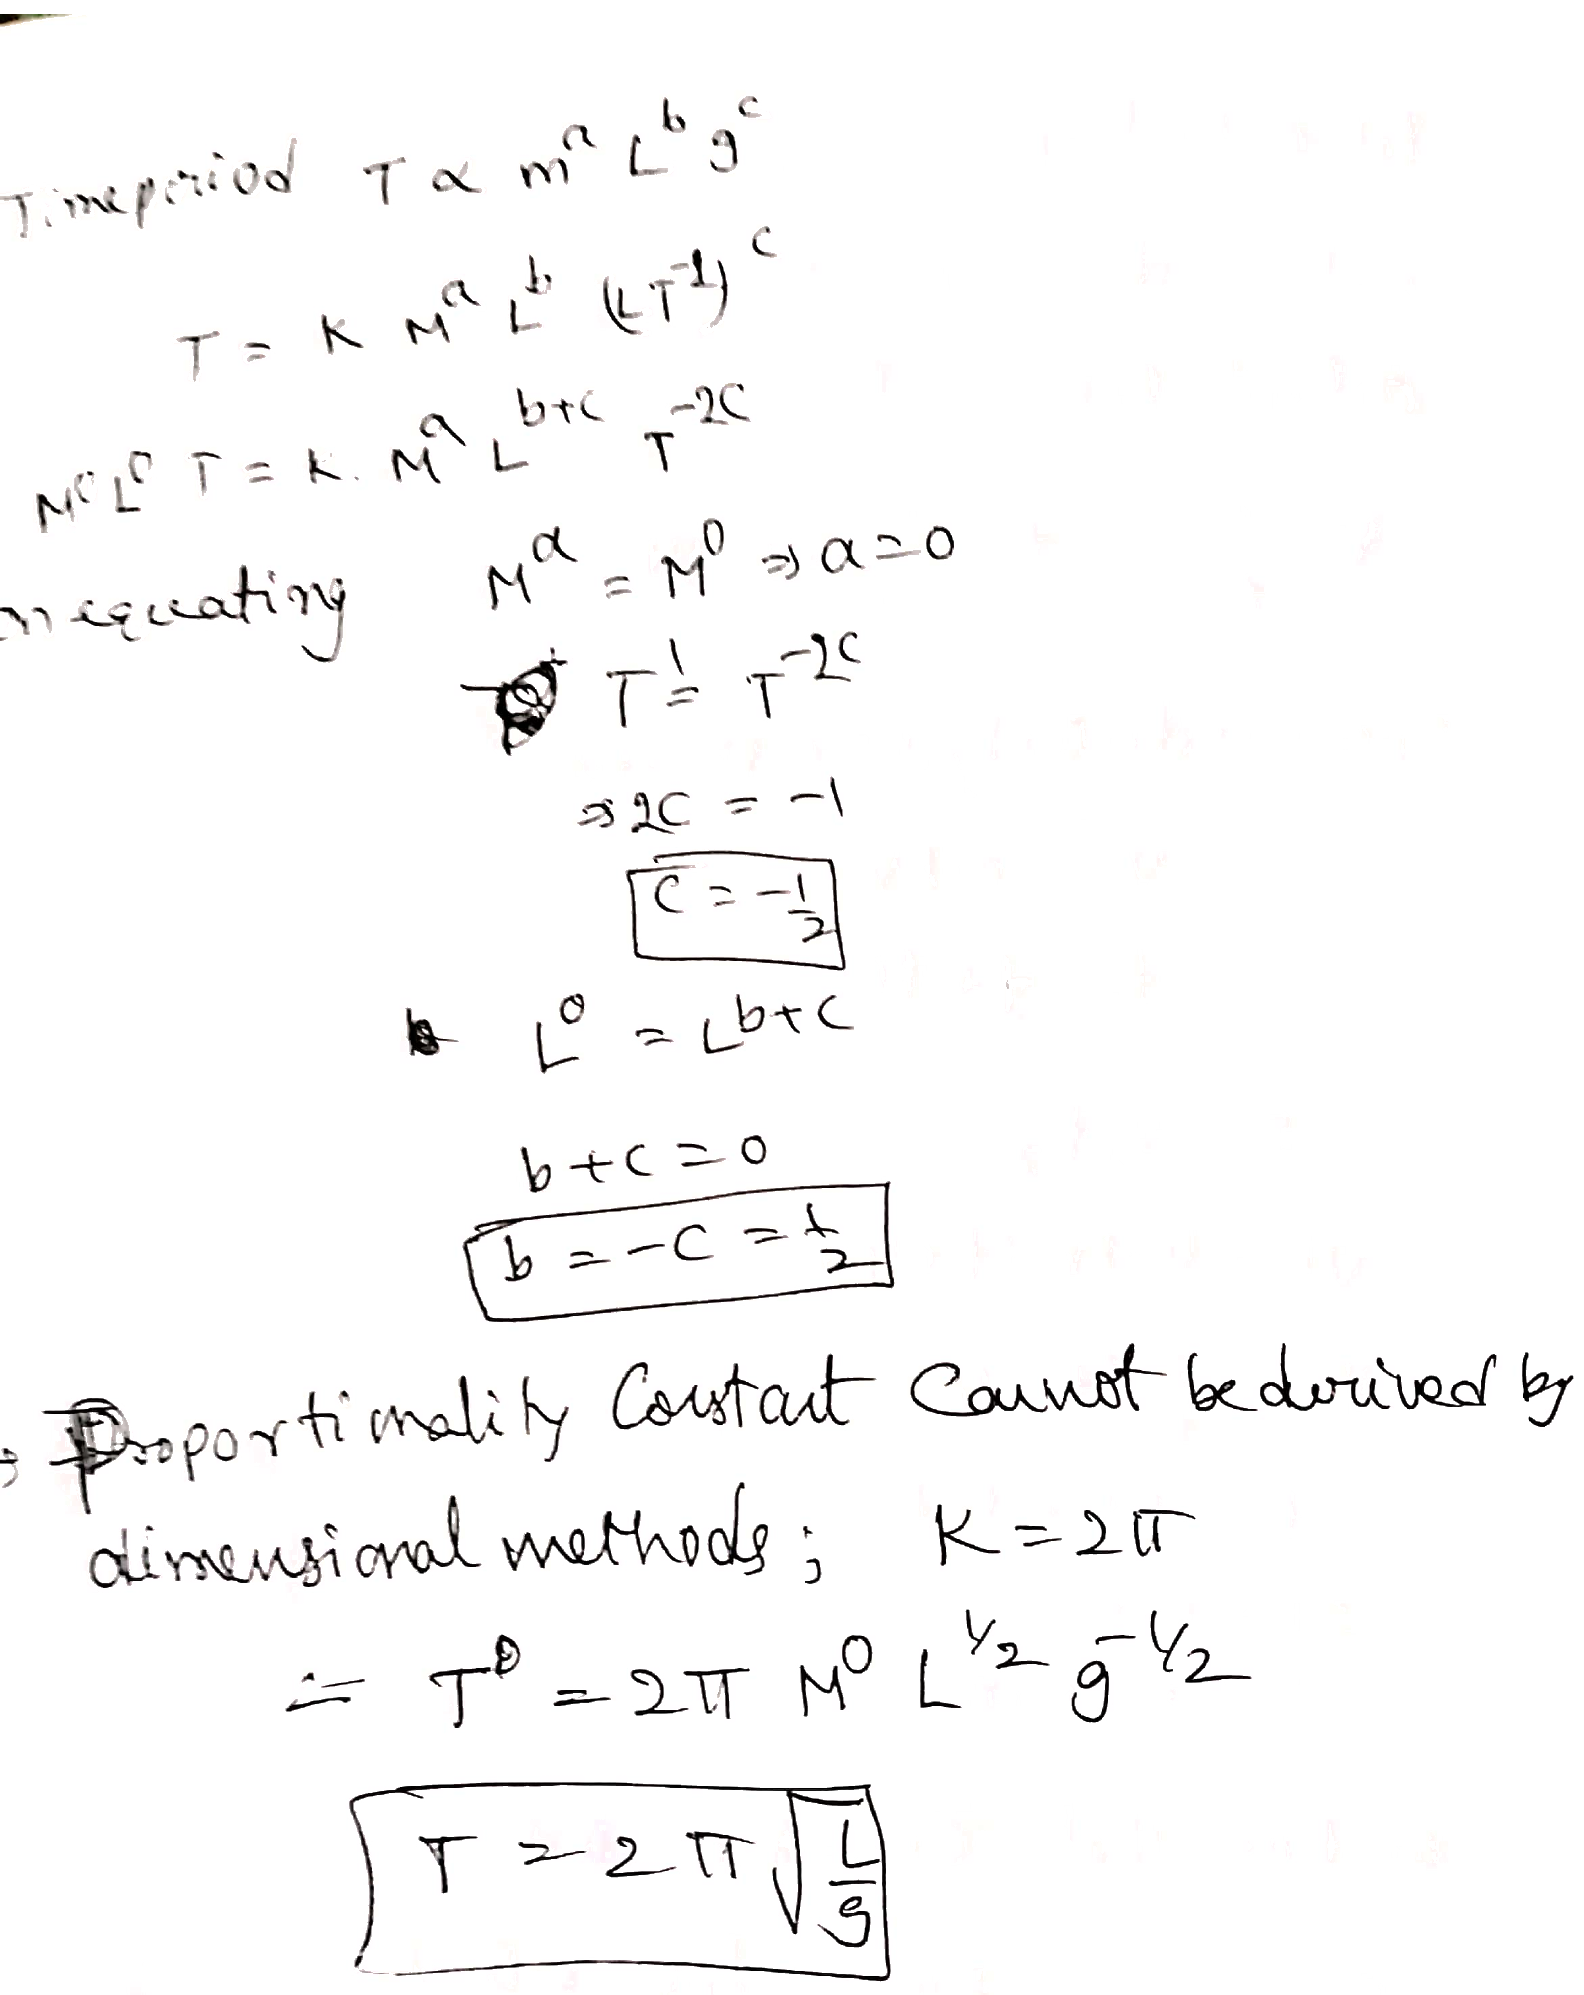 Timeperiod T ∝ m^a L^b g^c
T = K M^a L^b (LT^-2)^c
M^0 L^0 T = K. M^a L^b+c T^-2c
equating M^a = M^0 ⇒ a=0
T^1 = T^-2c
⇒ 2c = -1
c = -1/2
L^0 = L^b+c
b+c=0
b = -c = 1/2
Proportionality Constant Cannot be derived by
dimensional methods; K = 2π
= T = 2π M^0 L^1/2 g^-1/2
T = 2π √(L/g)